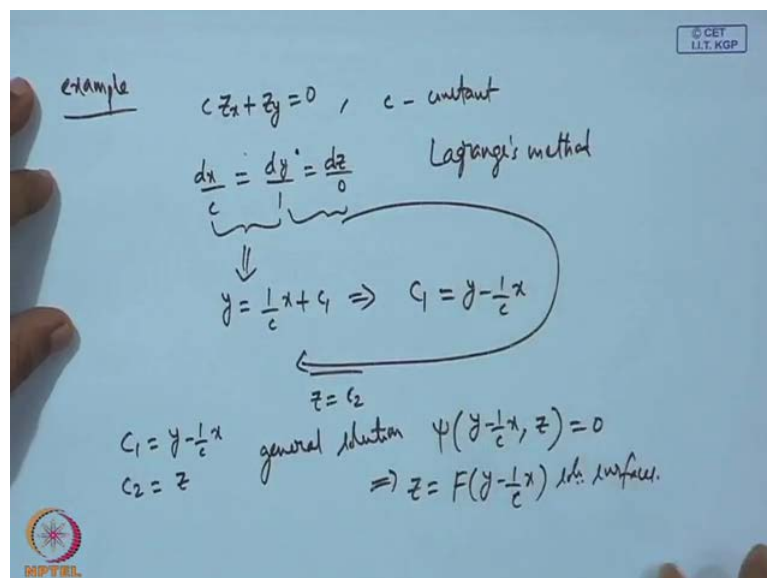 © CET
I.I.T. KGP
example c Zx + Zy = 0 , c - constant
dx/c = dy/1 = dz/0 Lagrange's method
⇓
y = 1/c x + c₁ ⇒ C₁ = y - 1/c x
z = c₂
C₁ = y - 1/c x general solution ψ(y - 1/c x, z) = 0
C₂ = z ⇒ z = F(y - 1/c x) soln. surfaces.
NPTEL